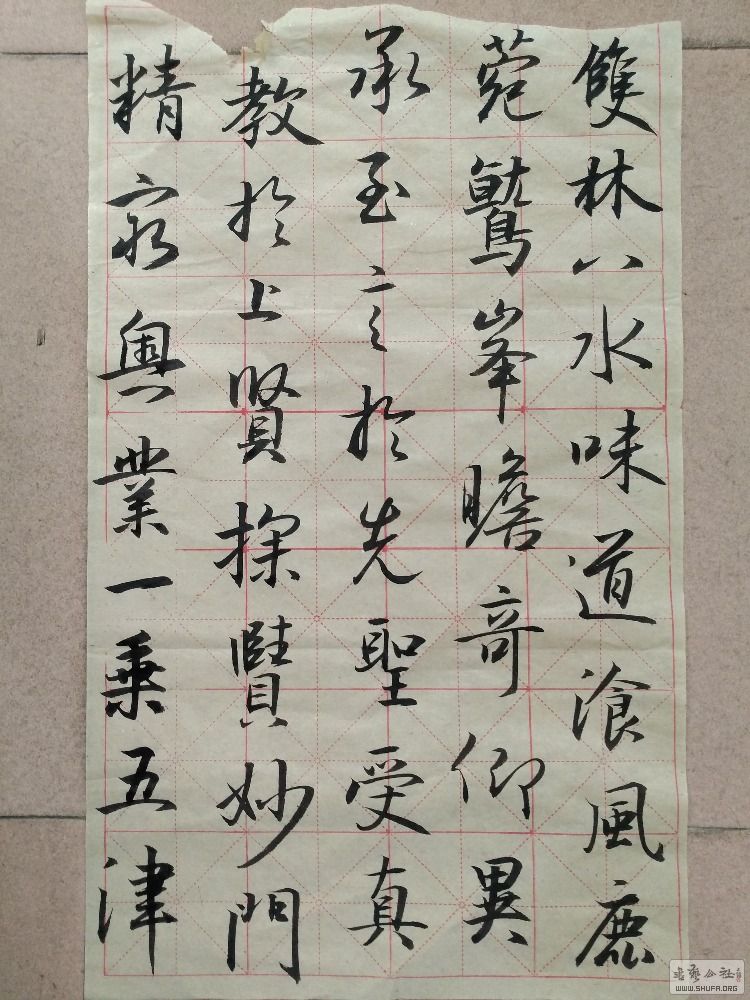 雙林八水味道湌風鹿
菀鷲峯瞻奇仰異
承至言於先聖受真
教於上賢探賾妙門
精窮奥業一乗五津
书艺公社
WWW.SHUFA.ORG